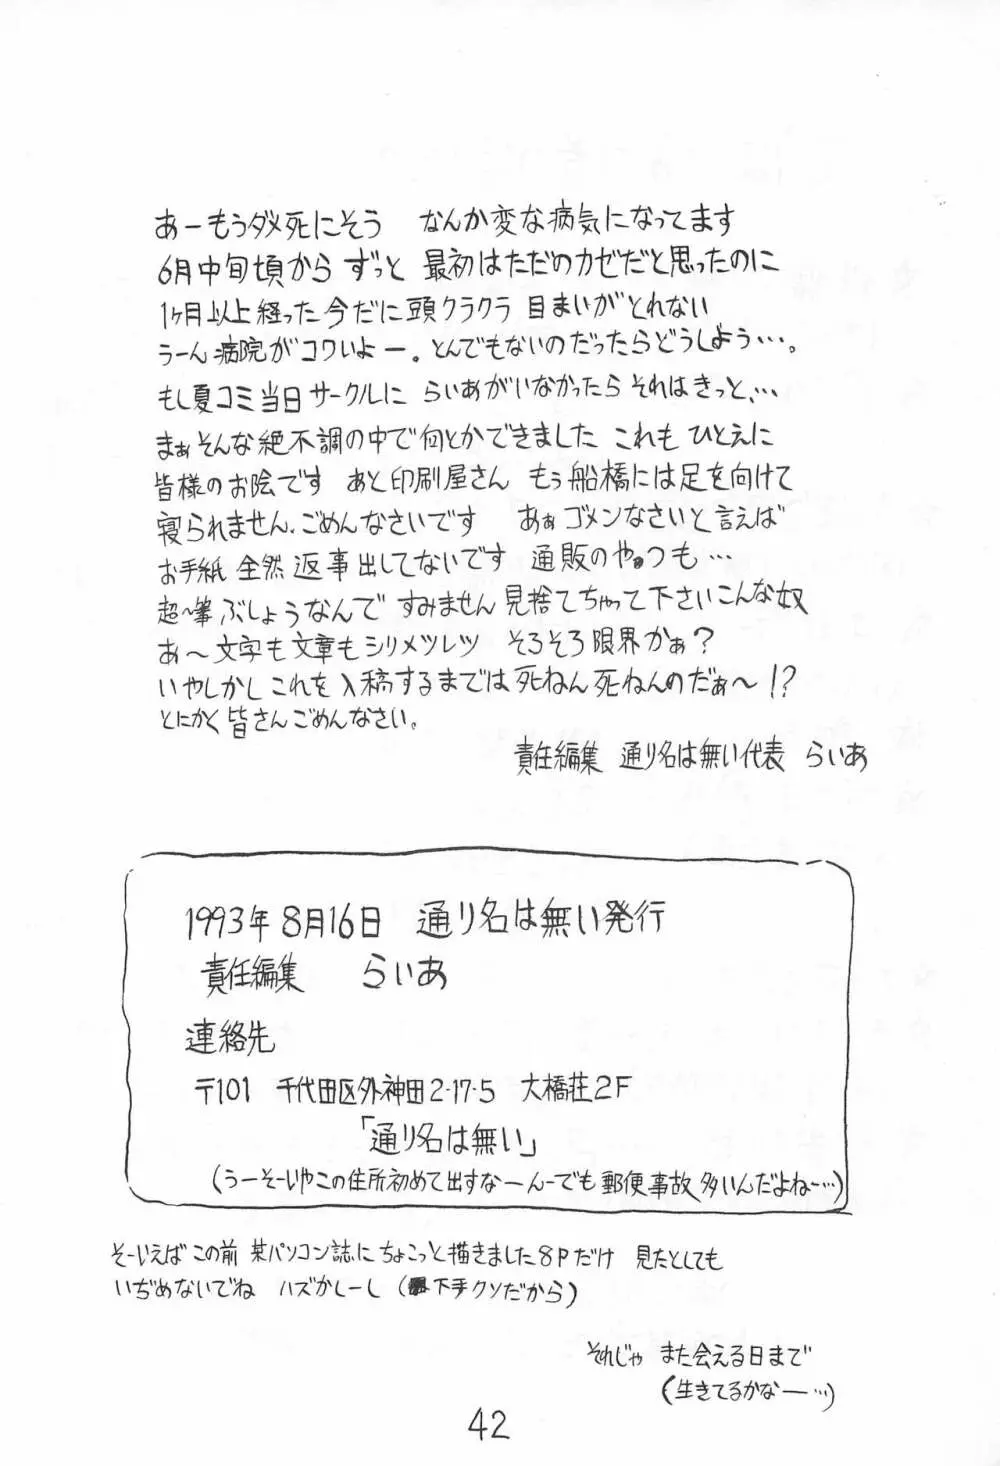 あーもうダメ死にそう　なんか変な病気になってます
6月中旬頃から ずっと 最初はただのカゼだと思ったのに
1ヶ月以上経った今だに頭クラクラ 目まいがとれない
うーん病院がコワいよー。とんでもないのだったらどうしよう…。
もし夏コミ当日サークルに らいあがいなかったら それはきっと、…
まぁそんな絶不調の中で何とかできました これも ひとえに
皆様のお陰です　あと印刷屋さん　もう船橋には足を向けて
寝られません、ごめんなさいです　あぁ ゴメンなさいと言えば
お手紙 全然 返事出してないです　通販のやつも…
超〜筆ぶしょうなんで すみません 見捨てちゃって下さいこんな奴
あ〜文字も文章もシリメツレツ　そろそろ限界かぁ？
いやしかし これを入稿するまでは死ねん死ねんのだぁ〜!?
とにかく皆さんごめんなさい。
責任編集　通り名は無い代表　らいあ
1993年8月16日　通り名は無い発行
責任編集　らいあ
連絡先
〒101　千代田区外神田2-17-5　大橋荘2F
「通り名は無い」
(うーそーいやこの住所初めて出すなーんーでも郵便事故多いんだよねー…)
そーいえば この前 某パソコン誌にちょこっと描きました8Pだけ　見たとしても
いぢめないでね　ハズかしーし (下手クソだから)
それじゃ また会える日まで
(生きてるかなー…)
42